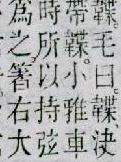 韘。毛曰。韘、決
時帶韘。小雅車
時所以持弦
為之。箸右大